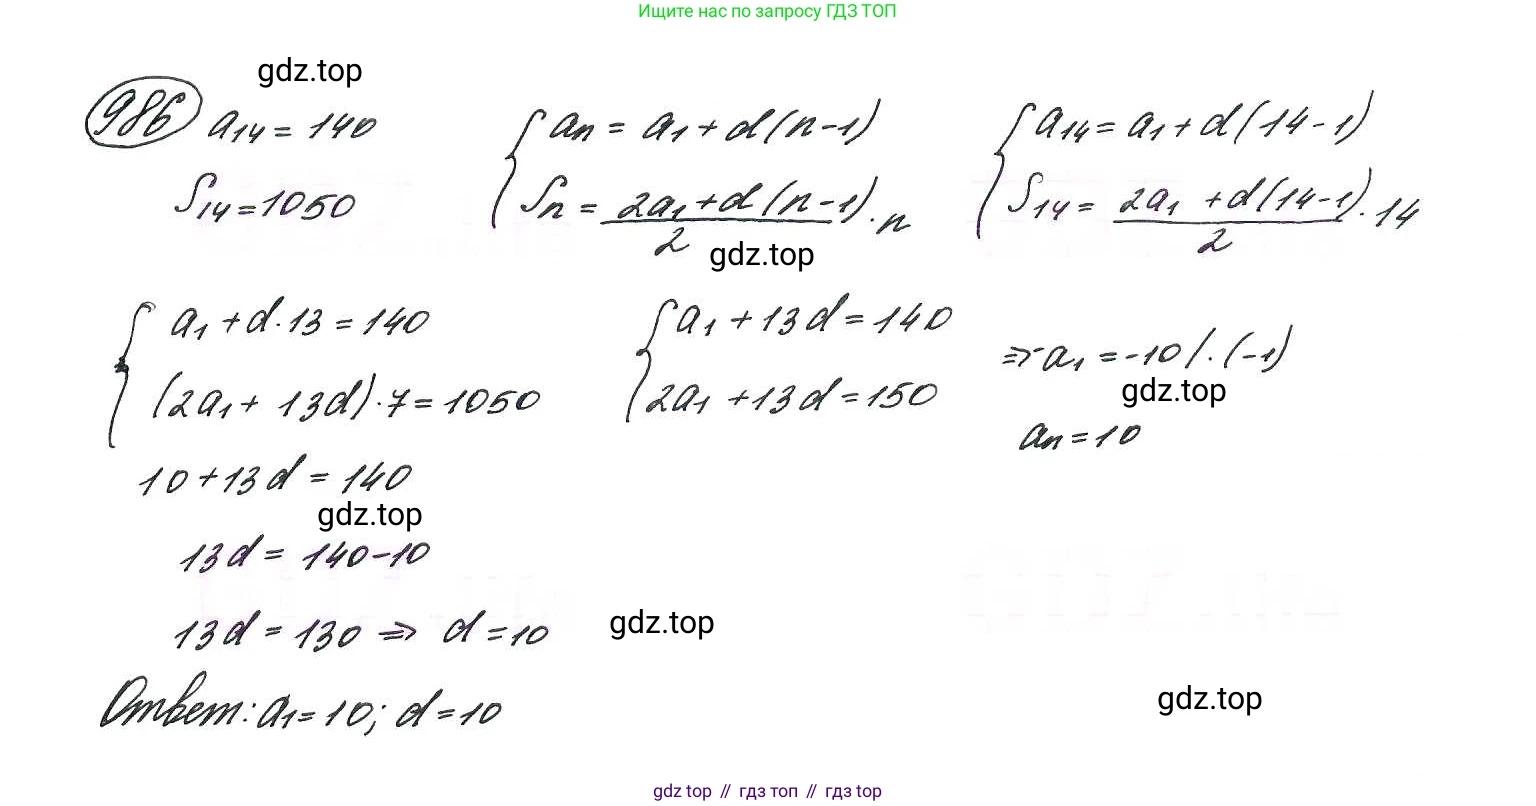 Ищите нас по запросу ГДЗ ТОП
gdz.top
986 a₁₄ = 140
S₁₄ = 1050
{ aₙ = a₁ + d(n-1)
Sₙ = (2a₁ + d(n-1))/2 · n
gdz.top
{ a₁₄ = a₁ + d(14-1)
S₁₄ = (2a₁ + d(14-1))/2 · 14
{ a₁ + d·13 = 140
(2a₁ + 13d)·7 = 1050
{ a₁ + 13d = 140
2a₁ + 13d = 150
⇒ -a₁ = -10 /·(-1)
gdz.top
aₙ = 10
10 + 13d = 140
gdz.top
13d = 140-10
13d = 130 ⇒ d = 10
gdz.top
Ответ: a₁ = 10; d = 10
gdz.top
gdz top // гдз топ // gdz top